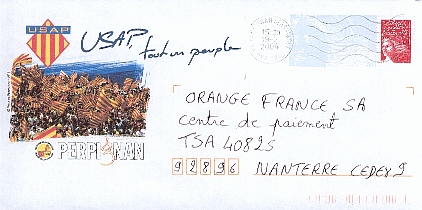 USAP
USAP,
tout un peuple
PERPIGNAN
ORANGE FRANCE SA
centre de paiement
TSA 40825
92896 NANTERRE CEDEX 9